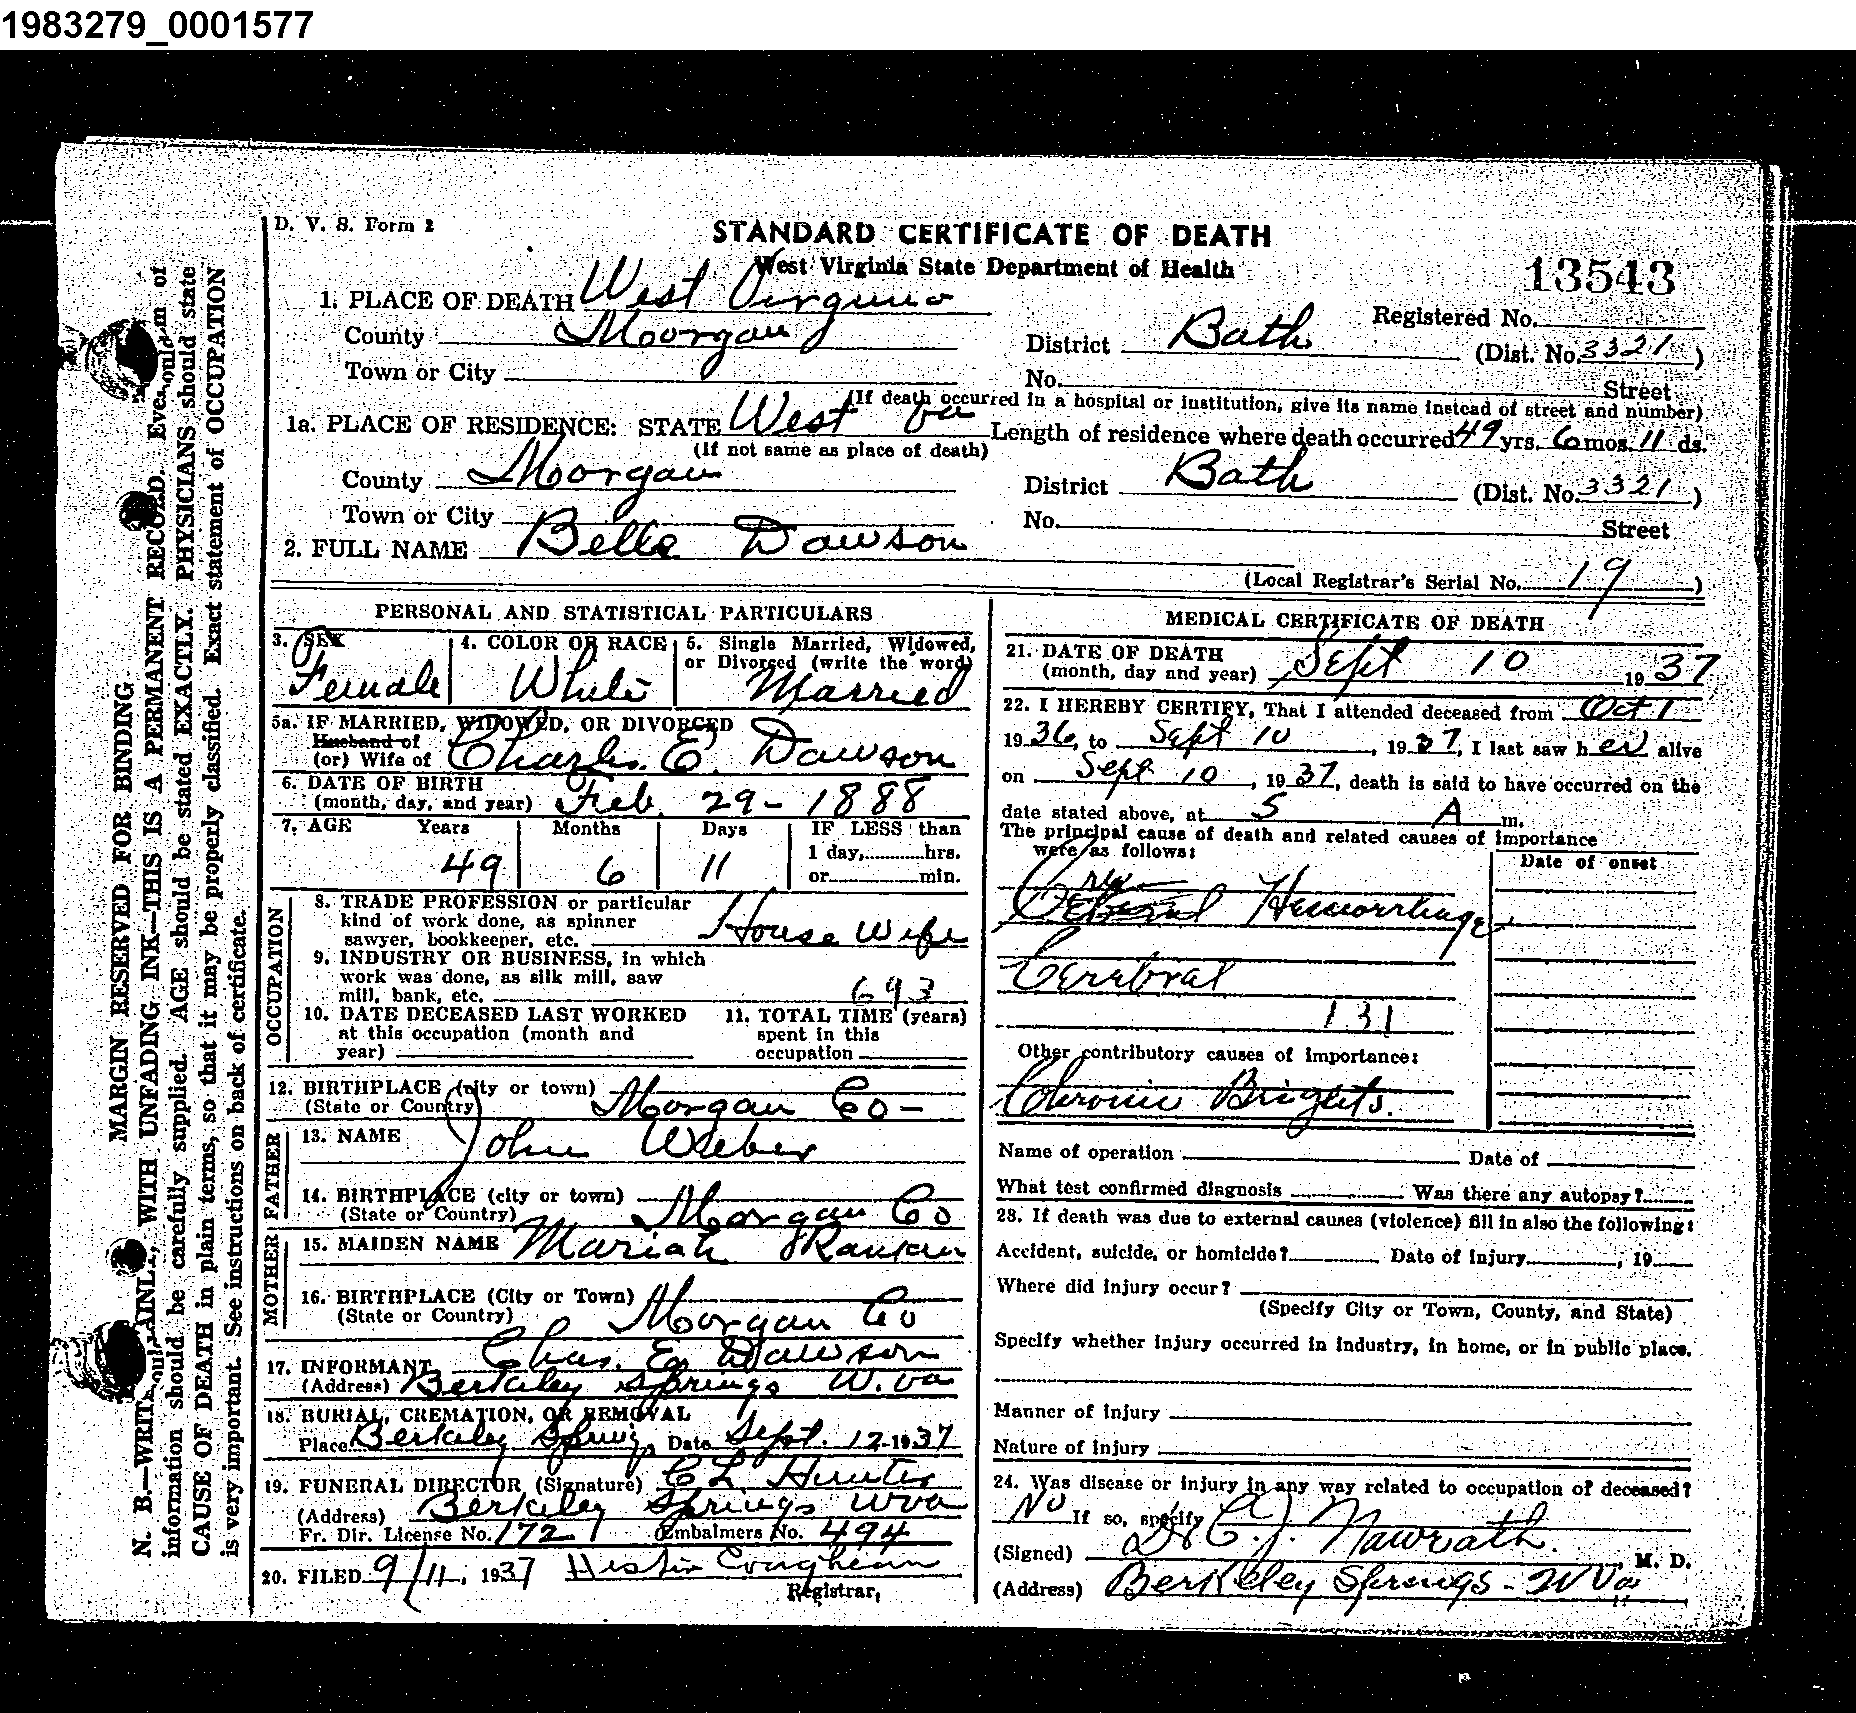 1983279_0001577
D. V. S. Form 2
STANDARD CERTIFICATE OF DEATH
West Virginia State Department of Health
13543
1. PLACE OF DEATH West Virginia
Registered No.
County Morgan
District Bath (Dist. No. 3321)
Town or City
No. Street
(If death occurred in a hospital or institution, give its name instead of street and number)
1a. PLACE OF RESIDENCE: STATE West Va
Length of residence where death occurred 49 yrs. 6 mos. 11 ds.
(If not same as place of death)
County Morgan
District Bath (Dist. No. 3321)
Town or City
No. Street
2. FULL NAME Belle Dawson
(Local Registrar's Serial No. 19)
PERSONAL AND STATISTICAL PARTICULARS
3. SEX
Female
4. COLOR OR RACE
White
5. Single Married, Widowed,
or Divorced (write the word)
Married
5a. IF MARRIED, WIDOWED, OR DIVORCED
Husband of
(or) Wife of Charles E. Dawson
6. DATE OF BIRTH
(month, day, and year) Feb. 29 - 1888
7. AGE Years Months Days IF LESS than
1 day, hrs.
49 6 11 or min.
OCCUPATION
8. TRADE PROFESSION or particular
kind of work done, as spinner
sawyer, bookkeeper, etc. House Wife
9. INDUSTRY OR BUSINESS, in which
work was done, as silk mill, saw
mill, bank, etc. 693
10. DATE DECEASED LAST WORKED
at this occupation (month and
year)
11. TOTAL TIME (years)
spent in this
occupation
12. BIRTHPLACE (city or town)
(State or Country) Morgan Co -
FATHER
13. NAME John Weber
14. BIRTHPLACE (city or town)
(State or Country) Morgan Co
MOTHER
15. MAIDEN NAME Mariah
16. BIRTHPLACE (City or Town)
(State or Country) Morgan Co
17. INFORMANT Chas. E. Dawson
(Address) Berkeley Springs W. Va
18. BURIAL, CREMATION, OR REMOVAL
Place Berkeley Springs Date Sept. 12 - 1937
19. FUNERAL DIRECTOR (Signature) C L Hunter
(Address) Berkeley Springs W Va
Fr. Dir. License No. 172 Embalmers No. 494
20. FILED 9/11, 1937
Registrar,
MEDICAL CERTIFICATE OF DEATH
21. DATE OF DEATH
(month, day and year) Sept 10 1937
22. I HEREBY CERTIFY, That I attended deceased from Oct 1
1936, to Sept 10, 1937, I last saw her alive
on Sept 10, 1937, death is said to have occurred on the
date stated above, at 5 A m.
The principal cause of death and related causes of importance
were as follows:
Date of onset
Hemorrhage
Cerebral
131
Other contributory causes of importance:
Chronic Brights.
Name of operation Date of
What test confirmed diagnosis Was there any autopsy?
23. If death was due to external causes (violence) fill in also the following:
Accident, suicide, or homicide? Date of injury, 19
Where did injury occur?
(Specify City or Town, County, and State)
Specify whether injury occurred in industry, in home, or in public place.
Manner of injury
Nature of injury
24. Was disease or injury in any way related to occupation of deceased?
No If so, specify
(Signed) Dr C. J. Nawrath. M. D.
(Address) Berkeley Springs - W Va
MARGIN RESERVED FOR BINDING
N. B.—WRITE PLAINLY, WITH UNFADING INK—THIS IS A PERMANENT RECORD. Every item of
information should be carefully supplied. AGE should be stated EXACTLY. PHYSICIANS should state
CAUSE OF DEATH in plain terms, so that it may be properly classified. Exact statement of OCCUPATION
is very important. See instructions on back of certificate.